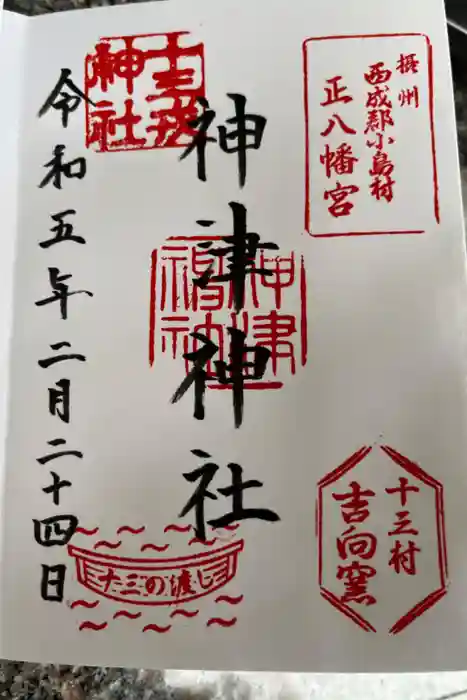 摂州
西成郡小島村
正八幡宮
神津神社
神津
神社
十三戎
神社
令和五年二月二十四日
十三村
吉向窯
十三の渡し